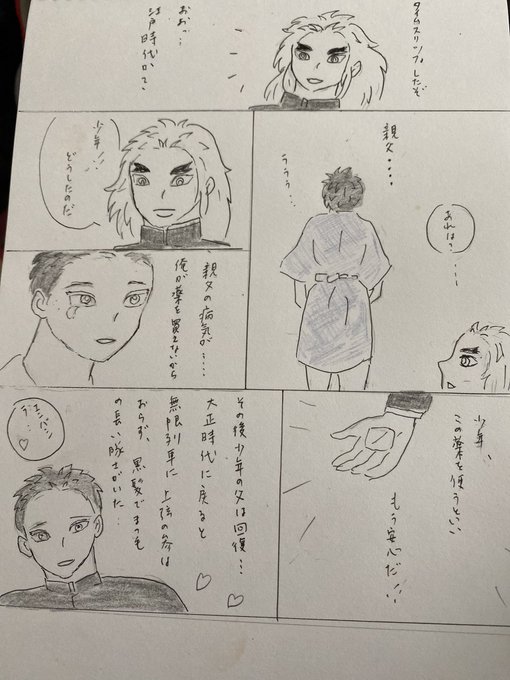 タイムスリップしたぞ
おおっ…
江戸時代かて
親父…
ううう…
あれは？…
少年！！
どうしたのだ
親父の病気が…
俺が薬を買えないから
少年、
この薬を使うといい
もう安心だ！！
その後少年の父は回復…
大正時代に戻ると
無限列車に上弦の参は
おらず、黒髪でまつ毛
の長い隊士がいた…